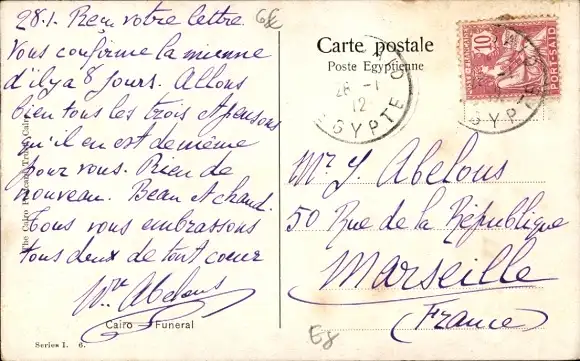 28.1. Reçu votre lettre.
Vous confirme la mienne
d'il y a 8 jours. Allons
bien tous les trois et pensons
qu'il en est de même
pour vous. Rien de
nouveau. Beau et chaud.
Tous vous embrassons
tous deux de tout coeur
Abelous
Cairo Funeral
Series I. 6.
The Cairo Postcard Trust, Cairo
68
Carte postale
Poste Egyptienne
28 -1
12
EGYPTE
10
PORT-SAÏD
EGYPTE
Mr. J. Abelous
50 Rue de la République
Marseille
(France)
68